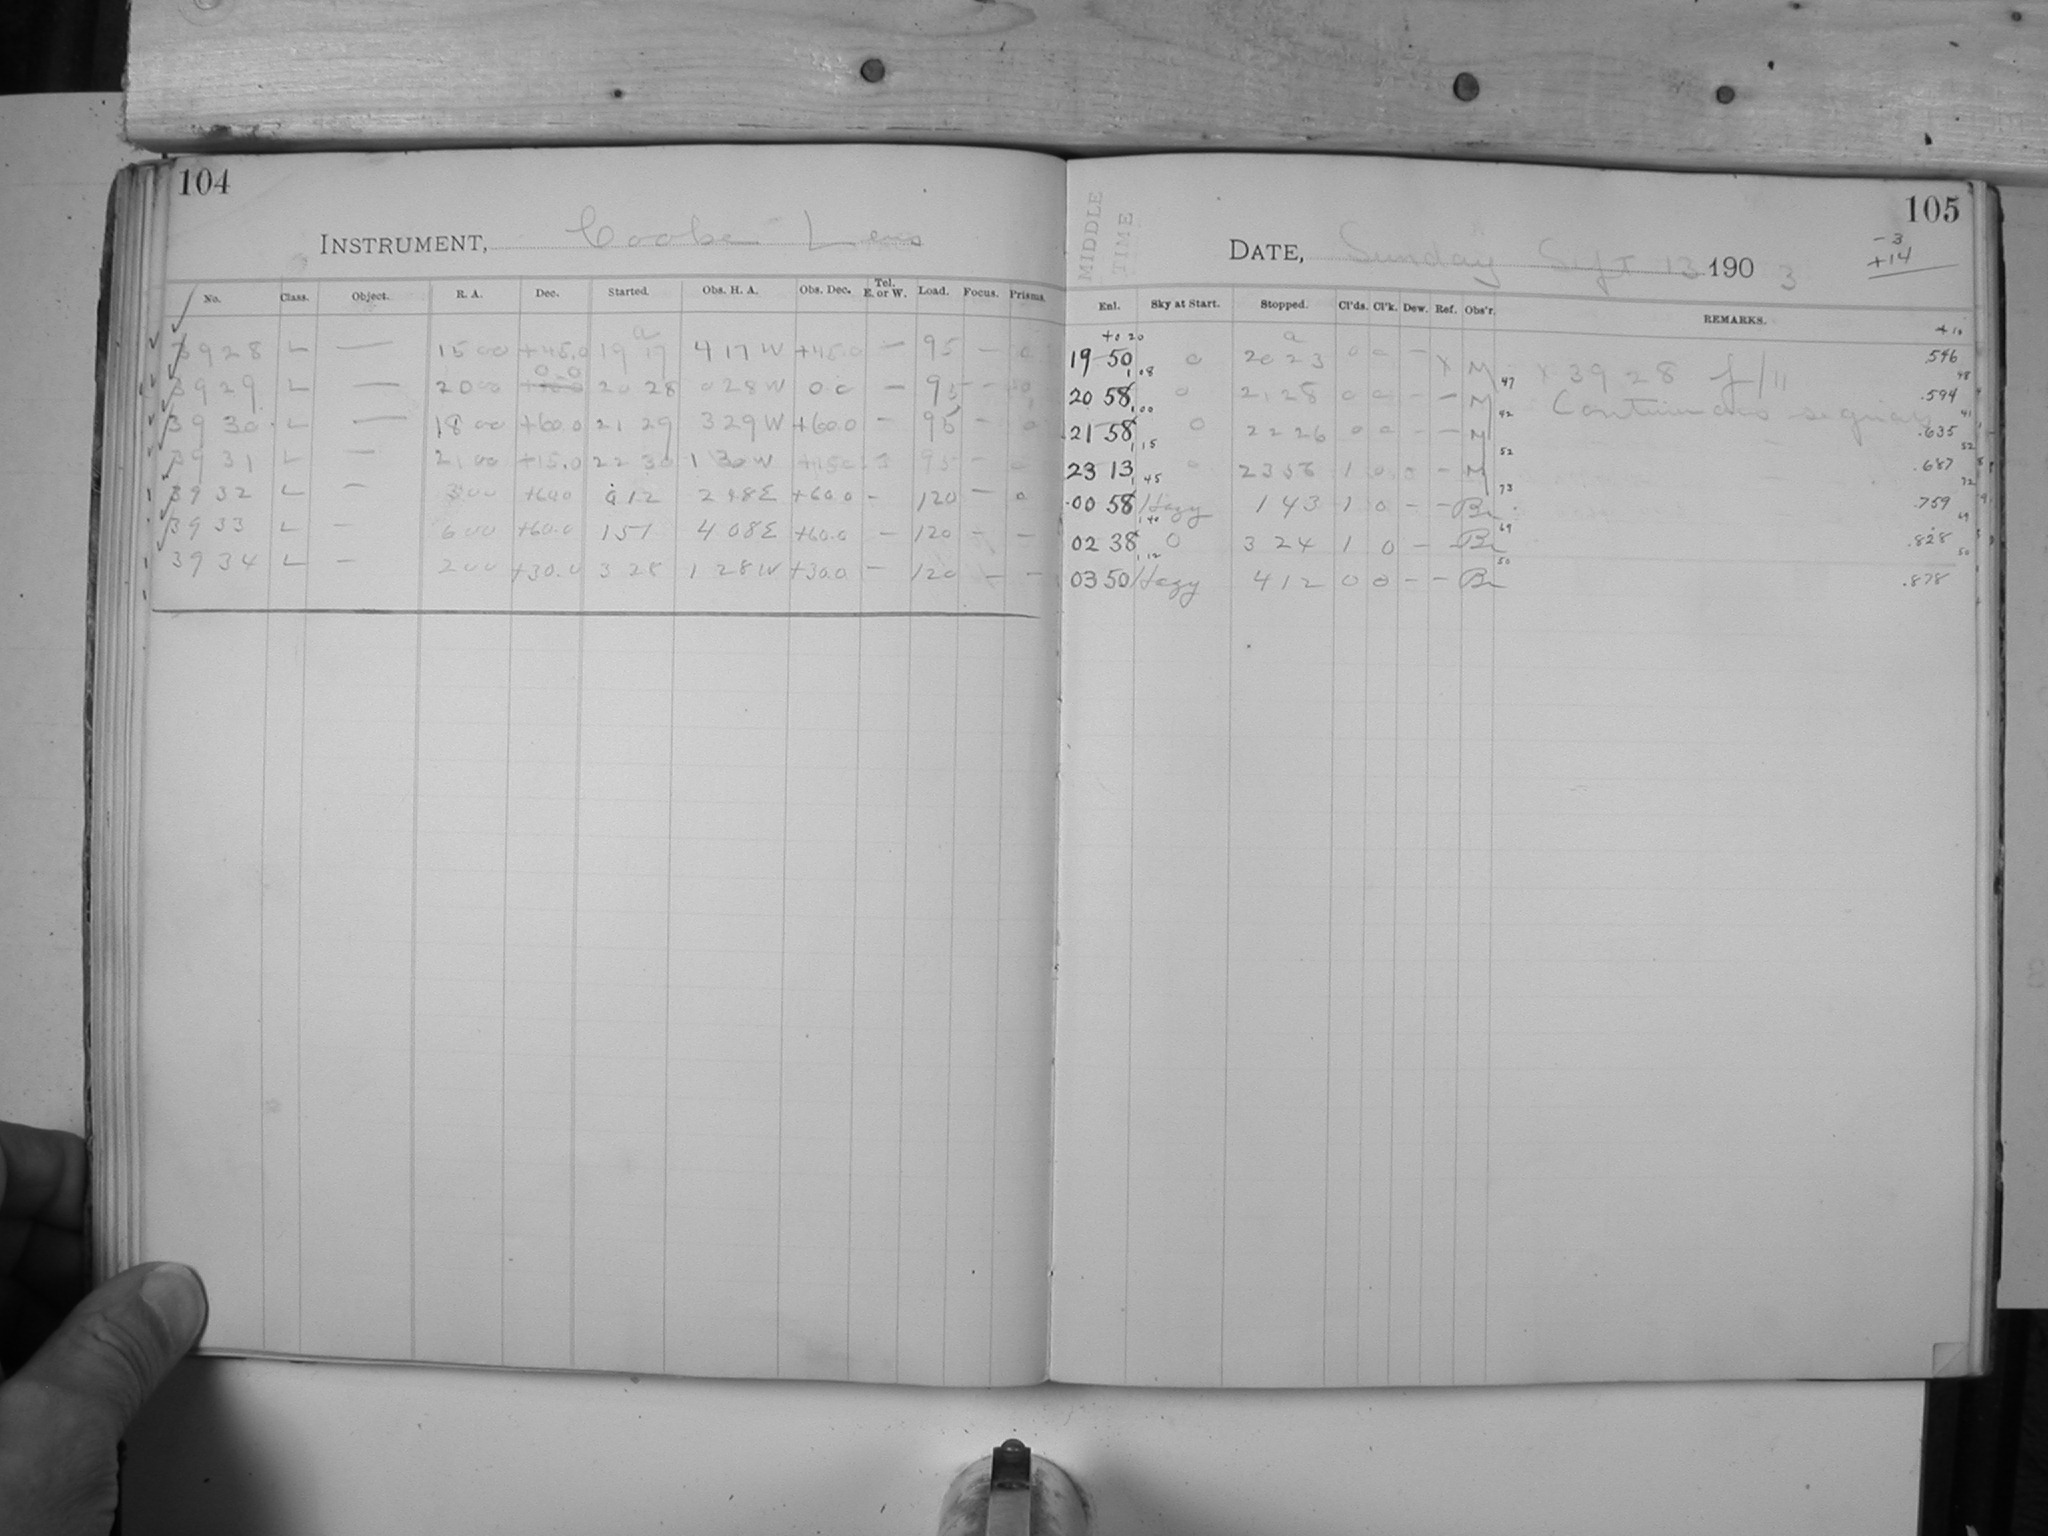 104
INSTRUMENT, Cooke Lens
No. Class. Object. R. A. Dec. Started. Obs. H. A. Obs. Dec. Tel. E. or W. Load. Focus. Prisms.
a
3928 L — 15 00 +45.0 19 17 4 17 W +45.0 — 95 — 0
0.0
3929 L — 20 00 20 28 0 28 W 0 0 — 95 —
3930 L — 18 00 +60.0 21 29 3 29 W +60.0 — 95 — 0
3931 L — 21 00 +15.0 22 30 1 30 W +15.0 95 — 0
3932 L — 3 00 +60.0 0 12 2 48 E +60.0 - 120 — 0
3933 L — 6 00 +60.0 1 51 4 08 E +60.0 — 120 — —
3934 L — 2 00 +30.0 3 28 1 28 W +30.0 — 120 — —
105
MIDDLE TIME
DATE, Sunday Sept 13 1903
-3
+14
Enl. Sky at Start. Stopped. Cl'ds. Cl'k. Dew. Ref. Obs'r. REMARKS.
+0 20 a +10
19 50 0 20 23 0 0 — x M x 3928 f/11 .546
1.08 47 48
20 58 0 21 28 0 0 — — M Continuous sequious .594
1.00 42 41
21 58 0 22 26 0 0 — — M .635
1.15 52 52
23 13 0 23 56 1 0 0 — M .687
1.45 73 72
00 58 Hazy 1 43 1 0 — — Br .759
1.40 69 69
02 38 0 3 24 1 0 — — Br .828
1.12 50 50
03 50 Hazy 4 12 0 0 — — Br .878